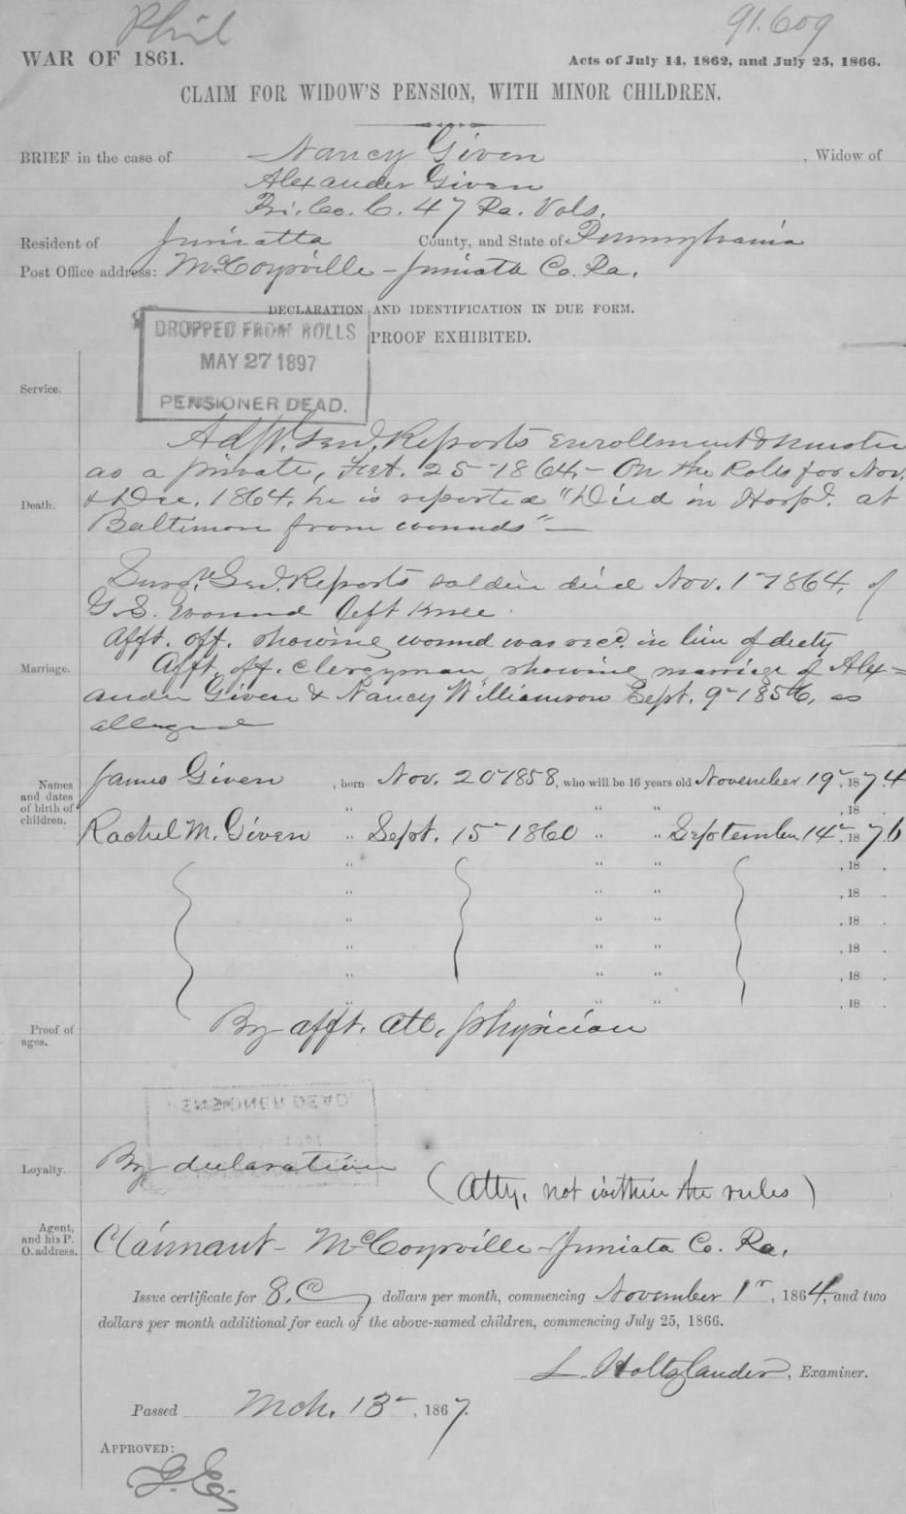 Phil
91.609
WAR OF 1861.
Acts of July 14, 1862, and July 25, 1866.
CLAIM FOR WIDOW'S PENSION, WITH MINOR CHILDREN.
BRIEF in the case of Nancy Given, Widow of
Alexander Given
Pri. Co. C. 47 Pa. Vols.
Resident of Juniatta County, and State of Pennsylvania
Post Office address: McCoysville - Juniata Co. Pa.
DECLARATION AND IDENTIFICATION IN DUE FORM.
PROOF EXHIBITED.
DROPPED FROM ROLLS
MAY 27 1897
PENSIONER DEAD.
Service.
Adjt. Genl. Reports enrollment & muster
as a private, 25 1864 - On the Rolls for Nov.
Death.
& Dec. 1864, he is reported "Died in Hospl. at
Baltimore from wounds" -
Surgn. Genl. Reports soldier died Nov. 1 1864, of
G.S. wound left knee.
Afft. off. showing wound was recd. in line of duty
Marriage.
Afft. of clergyman showing marriage of Alex=
ander Given & Nancy Williamson Sept. 9 1856, as
alleged
Names and dates of birth of children.
James Given, born Nov. 20 1858, who will be 16 years old November 19, 1874
" " " , 18
Rachel M. Given " Sept. 15 1860 " " September 14, 1876
" " " , 18 .
" " " , 18 .
" " " , 18 .
" " " , 18 .
" " " , 18 .
" " " , 18 .
Proof of ages.
By afft. att. physician
PENSIONER DEAD
Loyalty.
By declaration
(Atty. not within the rules)
Agent, and his P. O. address.
Claimant - McCoysville - Juniata Co. Pa.
Issue certificate for 8. dollars per month, commencing November 1st, 1864, and two
dollars per month additional for each of the above-named children, commencing July 25, 1866.
L. Holtzlander, Examiner.
Passed Mch. 13, 1867.
APPROVED: